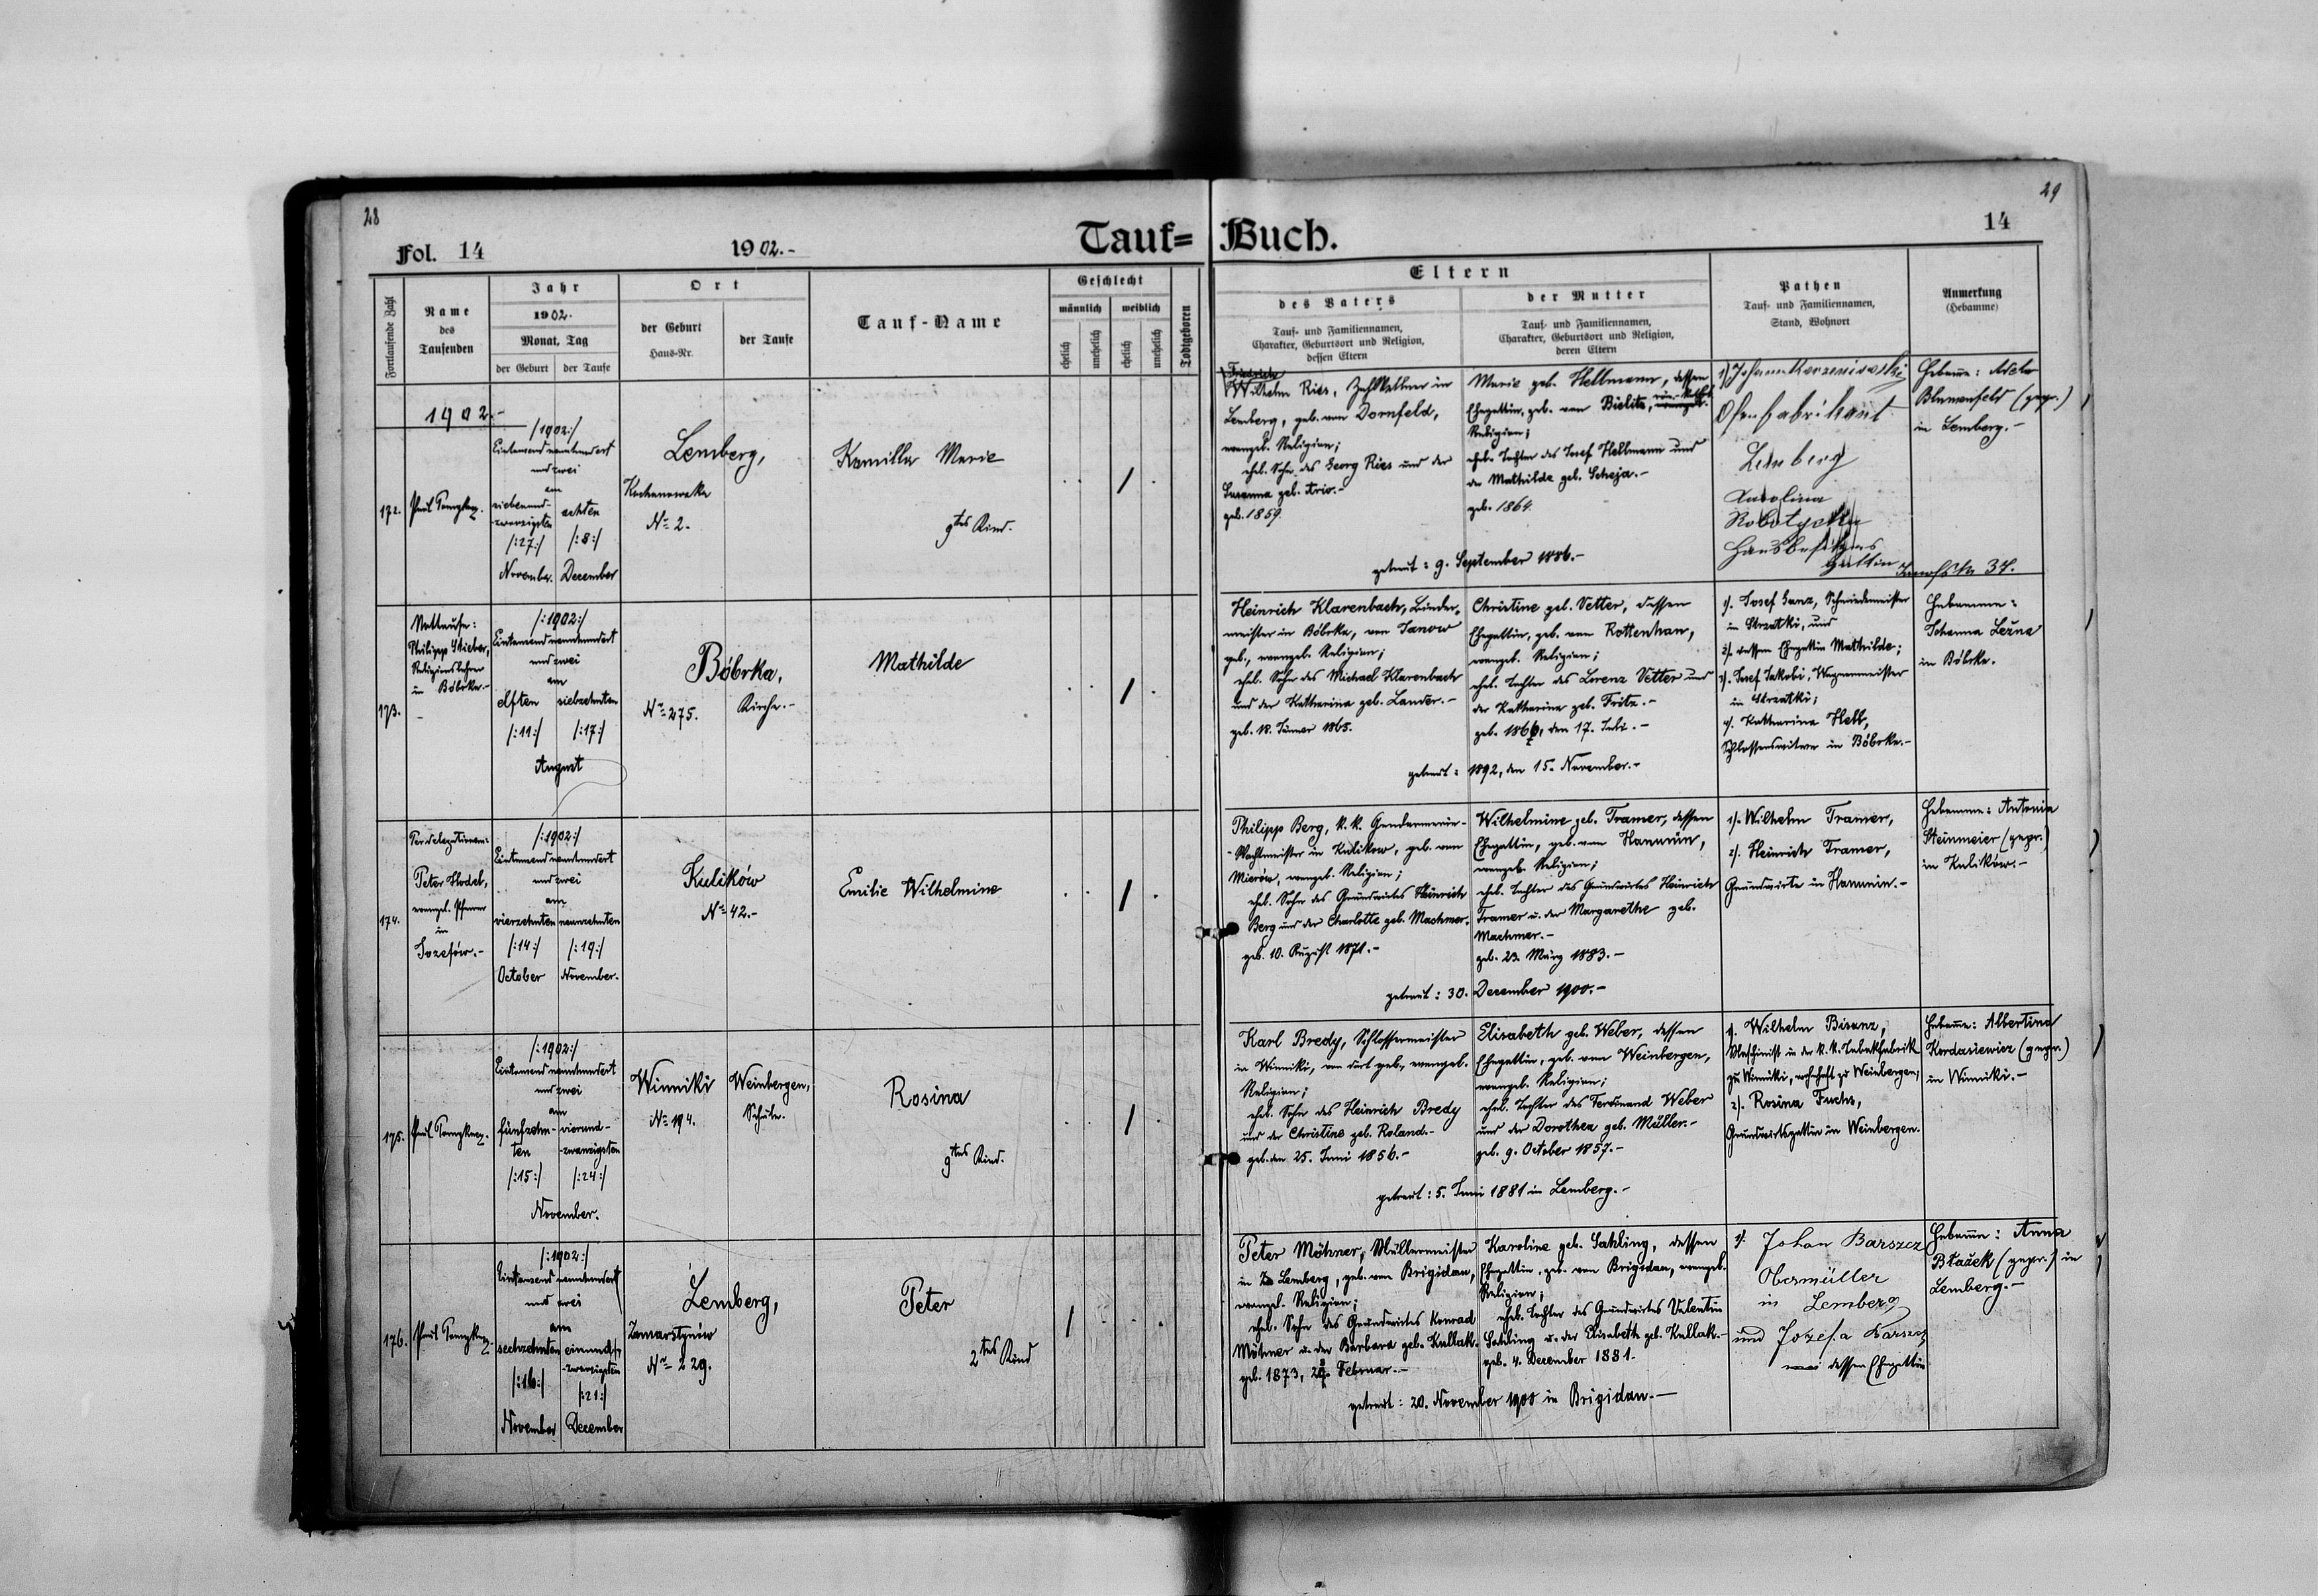 28
Fol. 14
1902.-
Tauf= Buch.
29
14
Fortlaufende Zahl
Name
des
Taufenden
Jahr
1902.
Monat, Tag
der Geburt
der Taufe
Ort
der Geburt
Haus-Nr.
der Taufe
Tauf-Name
Geschlecht
männlich
weiblich
ehelich
unehelich
ehelich
unehelich
Todtgeboren
Eltern
des Vaters
Tauf- und Familiennamen,
Charakter, Geburtsort und Religion,
dessen Eltern
der Mutter
Tauf- und Familiennamen,
Charakter, Geburtsort und Religion,
deren Eltern
Pathen
Tauf- und Familiennamen,
Stand, Wohnort
Anmerkung
(Hebamme)
1902.-
172.
/:1902:/
Eintausend neunhundert
und zwei
am
siebenund-
zwanzigsten
/:27:/
November.
achten
/:8:/
December
Lemberg,
Kochanowska
No 2.
Kamilla Marie
9tes Kind.
Friedrich
Wilhelm Ries, Zahlkellner in
Lemberg, geb. von Dornfeld,
evangel. Religion;
ehel. Sohn des Georg Ries und der
Susanna geb.
geb. 1859.
Marie geb. Hellmann, dessen
Ehegattin, geb. von Bielitz, röm. kath.
Religion;
ehel. Tochter des Josef Hellmann und
der Mathilde geb. Scheja.-
geb. 1864.
getraut: 9. September 1886.-
1) Johann Korzeniowski
Ofenfabrikant
Lemberg
Karolina
Robotycka
Hausbesitzers
Gattin Janowska 34.
Hebamme: Adela
Blumenfeld (gepr.)
in Lemberg.-
173.
Nottaufe:
Philipp Stieber,
Religionslehrer
in Bóbrka.-
/:1902:/
Eintausend neunhundert
und zwei
am
elften
/:11:/
siebzehnten
/:17:/
August
Bóbrka,
No 275.
Kirche.-
Mathilde
Heinrich Klarenbach, Binder-
meister in Bóbrka, von Janow
geb., evangel. Religion;
ehel. Sohn des Michael Klarenbach
und der Katharina geb. Lander.-
geb. 18. Jänner 1865.
Christine geb. Vetter, dessen
Ehegattin, geb. von Rottenhan,
evangel. Religion;
ehel. Tochter des Lorenz Vetter und
der Katharina geb. Fritz.-
geb. 1866, den 17. Juli.-
getraut: 1892, den 15. November.-
1). Josef Ganz, Schmiedemeister
in Strzałki, und
2). dessen Ehegattin Mathilde;
3). Josef Jakobi, Wagnermeister
in Strzałki;
4). Katharina Heib,
Schlosserswitwe in Bóbrka.-
Hebamme:
Johanna Leżna
in Bóbrka.
174.
Per delegationem:
Peter Hodel,
evangel. Pfarrer
in
Józefów.-
/:1902:/
Eintausend neunhundert
und zwei
am
vierzehnten
/:14:/
October
neunzehnten
/:19:/
November.
Kulików
No 42.-
Emilie Wilhelmine
Philipp Berg, k. k. Gendarmerie-
-Wachtmeister in Kulikow, geb. von
Mierów, evangel. Religion;
ehel. Sohn des Grundwirtes Heinrich
Berg und der Charlotte geb. Machmer.
geb. 10. August 1871.-
Wilhelmine geb. Tramer, dessen
Ehegattin, geb. von Hanunin,
evangel. Religion;
ehel. Tochter des Grundwirtes Heinrich
Tramer u. der Margarethe geb.
Machmer.-
geb. 23. März 1883.-
getraut: 30. December 1900.-
1). Wilhelm Tramer,
2). Heinrich Tramer,
Grundwirte in Hanunin.-
Hebamme: Antonia
Steinmeier (gepr.)
in Kulików.-
175.
/:1902:/
Eintausend neunhundert
und zwei
am
fünfzehn-
ten
/:15:/
vierund-
-zwanzigsten
/:24:/
November.
Winniki
No 194.
Weinbergen,
Schule.
Rosina
9tes Kind.
Karl Bredy, Schlossermeister
in Winniki, von dort geb., evangel.
Religion;
ehel. Sohn des Heinrich Bredy
und der Christine geb. Roland.-
geb. den 25. Juni 1856.-
Elisabeth geb. Weber, dessen
Ehegattin, geb. von Weinbergen,
evangel. Religion;
ehel. Tochter des Ferdinand Weber
und der Dorothea geb. Müller.-
geb. 9. October 1857.-
getraut: 5. Juni 1881 in Lemberg.-
1). Wilhelm Bisanz,
Maschinist in der k. k. Tabakfabrik
zu Winniki, wohnhaft zu Weinbergen;
2). Rosina Fuchs,
Grundwirtsgattin in Weinbergen.
Hebamme: Albertina
Kordasiewicz (gepr.)
in Winniki.-
176.
/:1902:/
Eintausend neunhundert
und zwei
am
sechzehnten
/:16:/
November
einund-
-zwanzigsten
/:21:/
December
Lemberg,
Zamarstynów
No 229.
Peter
2tes Kind
Peter Möhner, Müllermeister
in Lemberg, geb. von Brigidau,
evangel. Religion;
ehel. Sohn des Grundwirtes Konrad
Möhner u. der Barbara geb. Kullak.
geb. 1873, Februar.-
Karoline geb. Sahling, dessen
Ehegattin, geb. von Brigidau, evangel.
Religion;
ehel. Tochter des Grundwirtes Valentin
Sahling u. der Elisabeth geb. Kullak.-
geb. 4. December 1881.
getraut: 20. November 1900 in Brigidau.-
1). Johan Barszcz
Obermüller
in Lemberg
und Jozefa Barszcz
dessen Ehegattin
Hebamme: Anna
Błażek (gepr.) in
Lemberg.-